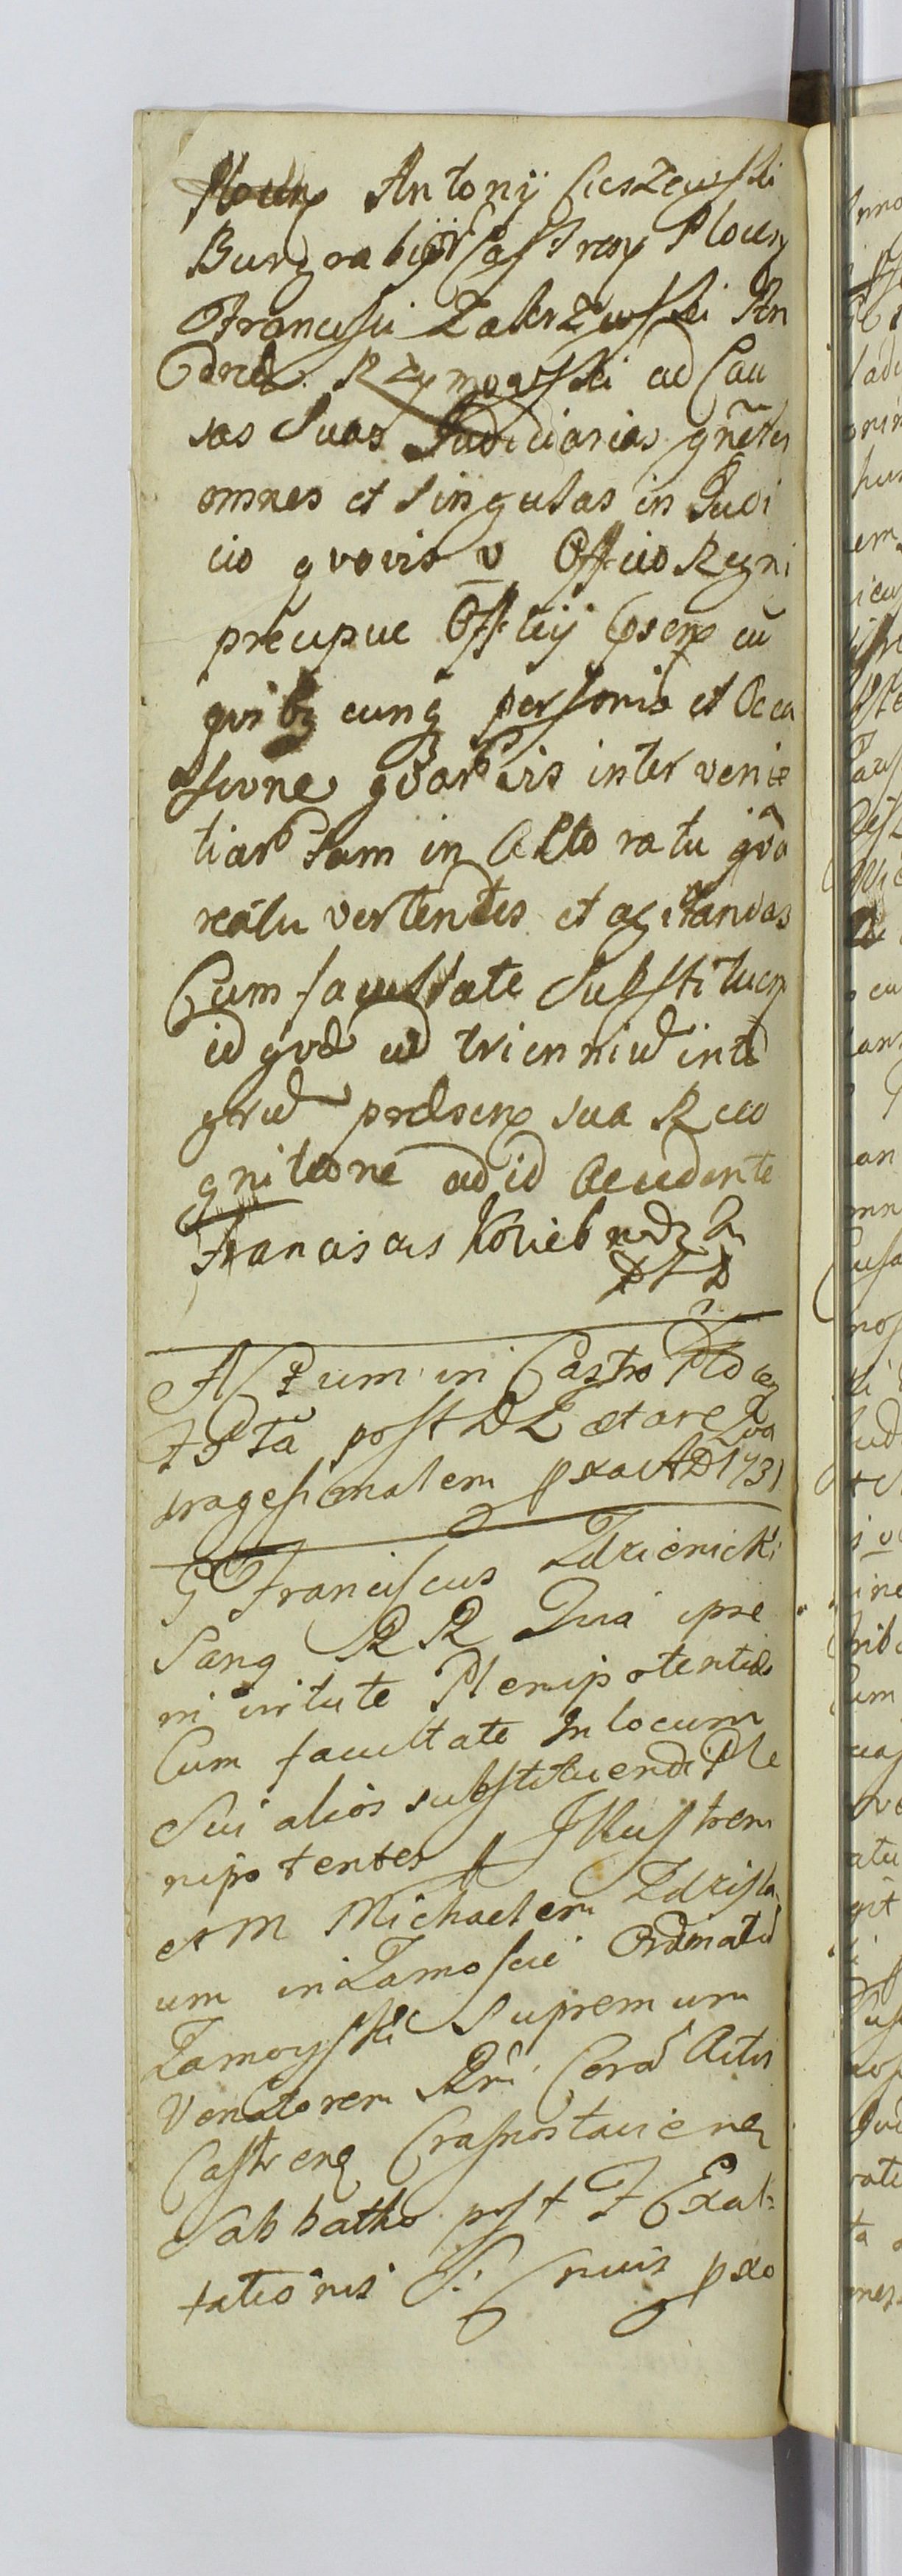 Antonij Cieszewski
Burgrabij Castren Plocen
Francisci Zakrzewski An
dreæ Rzymowski ad Cau
sas Suas Judiciarias gñeles
omnes et singulas in Judi
cio qvovis v Officio Regni
præcipue Officij Cum
qvibz cunq personis et Occa
sione qvarvis inter venie
tiarũ tam in Acto ratu qvã
reatu vertentes et agitandas
Cum facultate Substituen
id qvod ad trienniũ inte
grũ præsen sua Reco
gnitione ad id Accedente
Franciscus
Actum in Castro Plocen
post D Lætare Qua
dragesimalem pxa AD 1731
G Franciscus Zdzienicki
Sanq RR Qvia ipse
in virtute Plenipotentiæ
Cum facultate In locum
Sui alios substituendi Ple
nipotentes p Illustrem
et M Michaelem Zdzisla
um in Zamoscie Ordinatũ
Zamoyski Supremum
Venatorem Rni Corã Actis
Castren Crasnostavienq
Sabbatho post F Exal=
tationis S: Crucis pxo